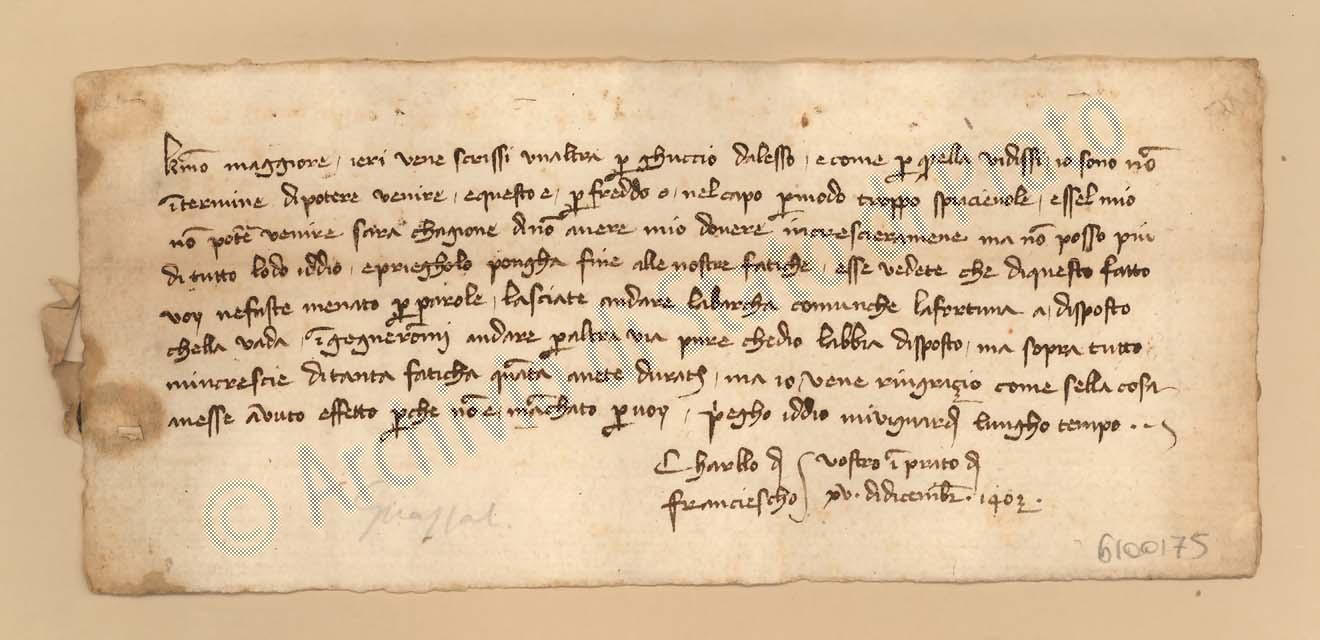 kmo maggiore, ieri vene scrissi unaltra p ghuccio dalesso, e come p quella vidissi, io sono nō
ītermine dipotere venire, e questo e, p freddo o, nel capo p modo troppo spiacievole, essel mio
nō potē venire sara chagione dinō avere mio dovere increscieramene ma nō posso piu
di tutto lodo iddio, e prieghōlo pongha fine alle nostre fatiche, esse vedete che diquesto fatto
voy nefuste menato p parole, lasciate andare labarcha comunche lafortuna a, disposto
chella vada, īgegnerōmi andare p altra via pure chedio labbia disposto, ma sopra tutto
mincrescie ditanta faticha quāta avete durata, ma io, vene ringrazio come sella cosa
avesse avuto effetto p che nō e, mācchato p voy, priegho iddio mi viguardi lungho tempo
Charllo di
Franciescho
vostro ī prato di
xv. didicembr. 1402.
© Archivio di Stato di Prato
6100175